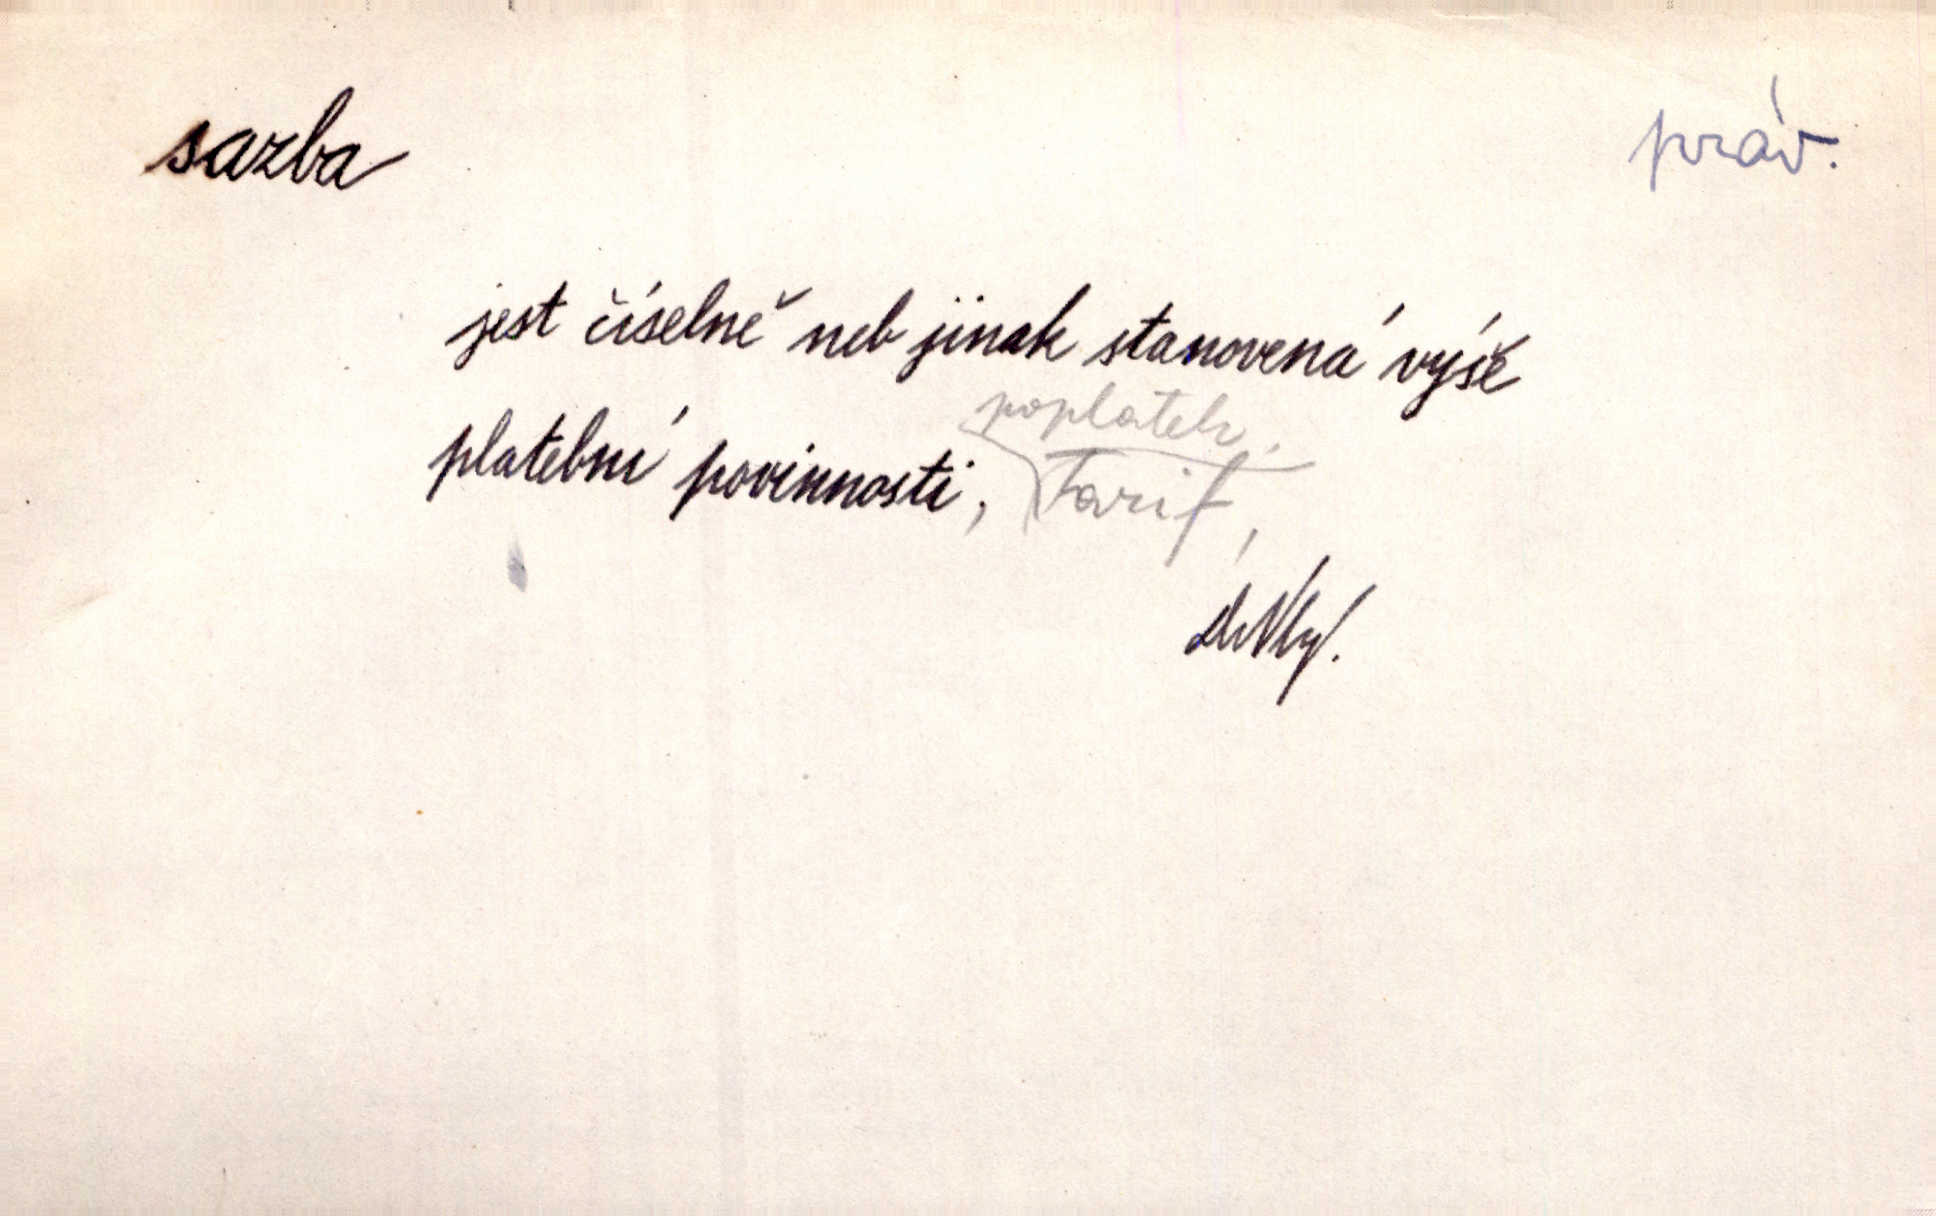 sazba práv.
jest číselně neb jinak stanovená výše
poplatek,
platební povinnosti, tarif,